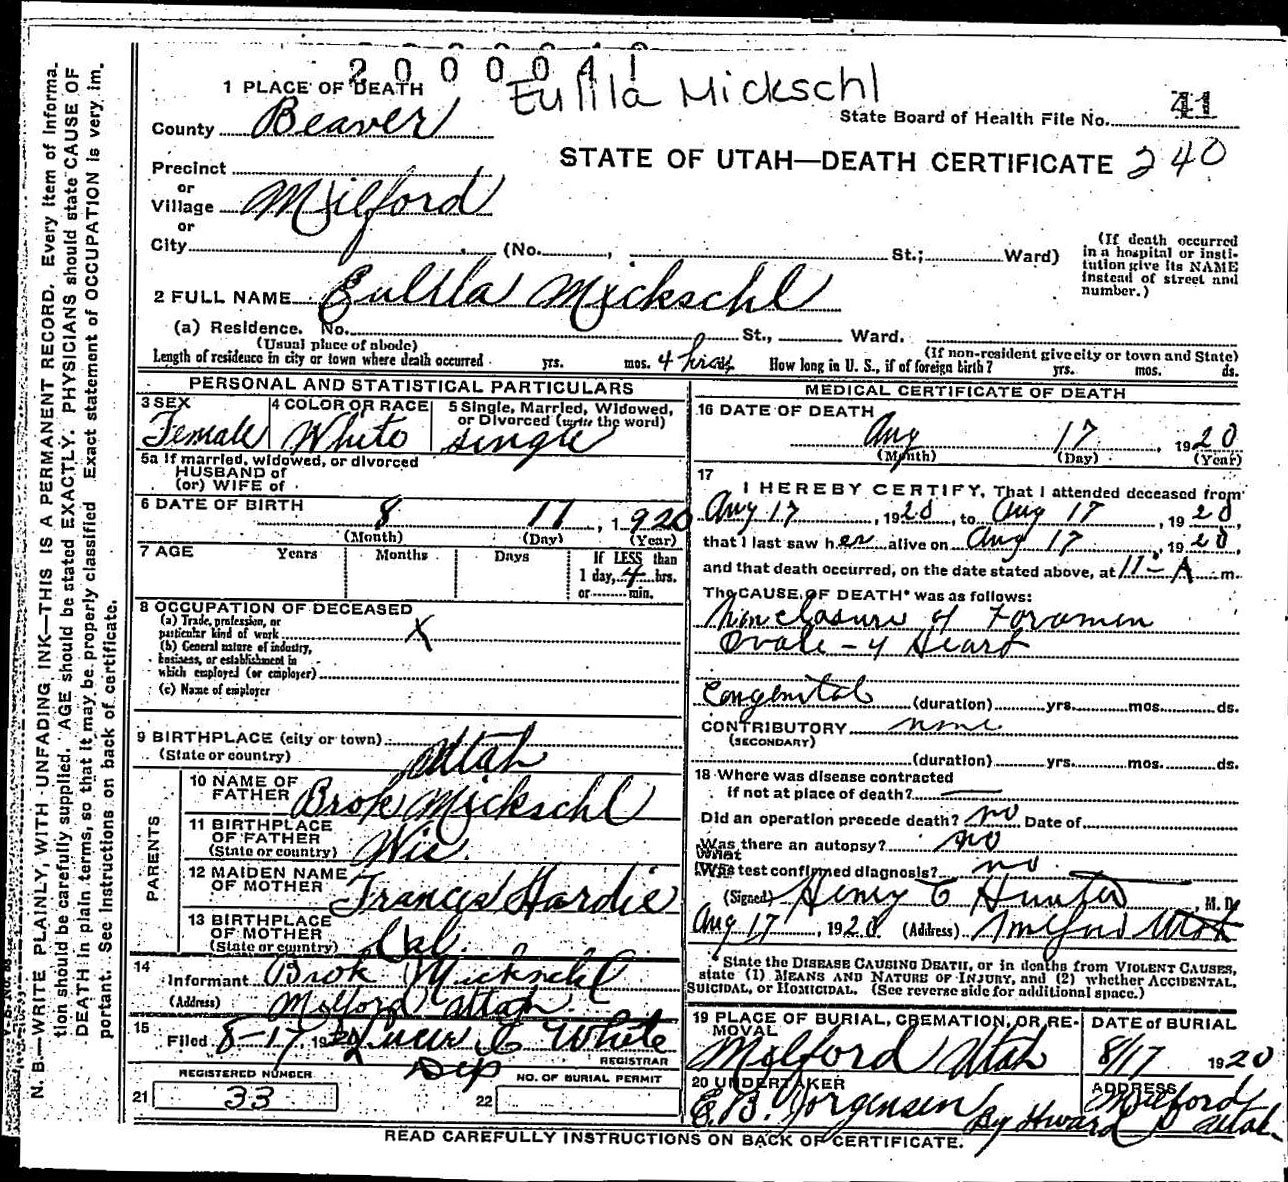 2000041
Eulila Mickschl
1 PLACE OF DEATH
County Beaver
State Board of Health File No. 41
STATE OF UTAH—DEATH CERTIFICATE 240
Precinct
or
Village Milford
or
City (No. , St.; Ward)
(If death occurred in a hospital or insti-
tution give its NAME instead of street and number.)
2 FULL NAME Eulila Mickschl
(a) Residence. No. St., Ward.
(Usual place of abode) (If non-resident give city or town and State)
Length of residence in city or town where death occurred yrs. mos. 4 hrs How long in U. S., if of foreign birth? yrs. mos. ds.
PERSONAL AND STATISTICAL PARTICULARS
3 SEX 4 COLOR OR RACE 5 Single, Married, Widowed, or Divorced (write the word)
Female White single
5a If married, widowed, or divorced
HUSBAND of
(or) WIFE of
6 DATE OF BIRTH 8 17, 1920
(Month) (Day) (Year)
7 AGE Years Months Days If LESS than
1 day, 4 hrs.
or min.
8 OCCUPATION OF DECEASED
(a) Trade, profession, or
particular kind of work X
(b) General nature of industry,
business, or establishment in
which employed (or employer)
(c) Name of employer
9 BIRTHPLACE (city or town)
(State or country) Utah
PARENTS
10 NAME OF FATHER Brok Mickschl
11 BIRTHPLACE OF FATHER
(State or country) Wis.
12 MAIDEN NAME OF MOTHER Francis Hardie
13 BIRTHPLACE OF MOTHER
(State or country) Cal.
14 Informant Brok Mickschl
(Address) Milford Utah
15 Filed 8-17 1920 C White
REGISTRAR
Dep
REGISTERED NUMBER NO. OF BURIAL PERMIT
21 33 22
MEDICAL CERTIFICATE OF DEATH
16 DATE OF DEATH
Aug 17, 1920
(Month) (Day) (Year)
17
I HEREBY CERTIFY, That I attended deceased from
Aug 17, 1920, to Aug 17, 1920,
that I last saw her alive on Aug 17, 1920,
and that death occurred, on the date stated above, at 11-A m.
The CAUSE OF DEATH* was as follows:
Non closure of Foramen
Ovale - of Heart
Congenital (duration) yrs. mos. ds.
CONTRIBUTORY none
(SECONDARY)
(duration) yrs. mos. ds.
18 Where was disease contracted
If not at place of death? —
Did an operation precede death? no Date of
Was there an autopsy? no
What test confirmed diagnosis? no
(Signed) Henry C Hunter, M. D.
Aug 17, 1920 (Address) Milford Utah
State the DISEASE CAUSING DEATH, or in deaths from VIOLENT CAUSES,
state (1) MEANS AND NATURE OF INJURY, and (2) whether ACCIDENTAL,
SUICIDAL, or HOMICIDAL. (See reverse side for additional space.)
19 PLACE OF BURIAL, CREMATION, OR RE-
MOVAL DATE of BURIAL
Milford Utah 8/17 1920
20 UNDERTAKER ADDRESS
E. B. Jorgensen By Milford Utah
READ CAREFULLY INSTRUCTIONS ON BACK OF CERTIFICATE.
N. B.—WRITE PLAINLY, WITH UNFADING INK—THIS IS A PERMANENT RECORD. Every item of informa-
tion should be carefully supplied. AGE should be stated EXACTLY. PHYSICIANS should state CAUSE OF
DEATH in plain terms, so that it may be properly classified Exact statement of OCCUPATION is very im-
portant. See instructions on back of certificate.